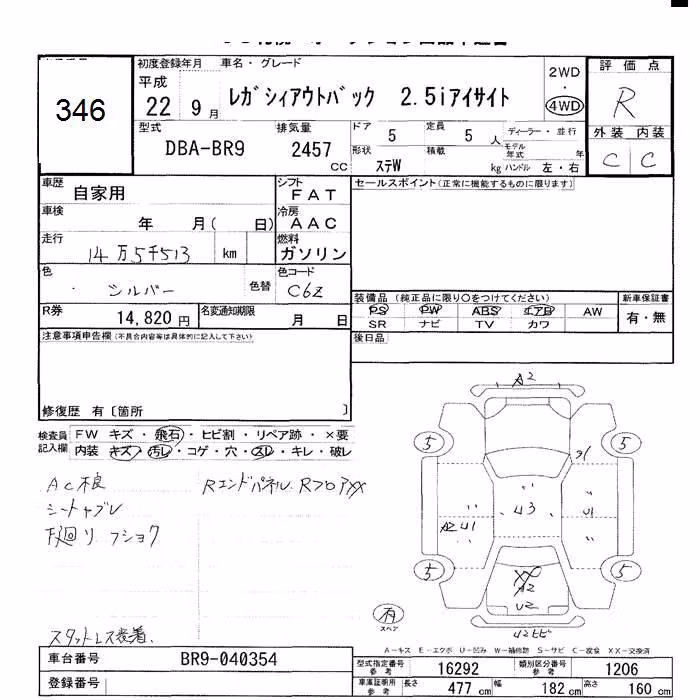 346
初度登録年月 車名・グレード
平成
22 9月
レガシィアウトバック 2.5iアイサイト
2WD
・
4WD
評価点
R
外装 内装
C C
型式
DBA-BR9
排気量
2457
CC
ドア 5
定員 5 人
ディーラー・並行
モデル年式 年
形状 ステW
積載 kg
ハンドル 左・右
車歴
自家用
シフト
FAT
セールスポイント(正常に機能するものに限ります)
車検
年 月( 日)
冷房
AAC
走行
14万5千513 km
燃料
ガソリン
色
シルバー
色替
色コード
C6Z
装備品 (純正品に限り○をつけてください)
新車保証書
PS PW ABS エアB AW
有・無
SR ナビ TV カワ
R券
14,820円
名変通知期限
月 日
後日品
注意事項申告欄(不具合内容等は具体的に記入して下さい)
修復歴 有〔箇所 〕
検査員記入欄
FW キズ・飛石・ヒビ割・リペア跡・×要
内装 キズ・汚レ・コゲ・穴・スレ・キレ・破レ
AC不良
シートヤブレ
下廻り フショク
RエンドパネルRフロアXX
スタットレス装着、
A2
5
5
A2 U1
U3
U1
5
5
XX
A2
U2
有
スペア
A-キズ E-エクボ U-凹み W-補修跡 S-サビ C-腐食 XX-交換済
車台番号
BR9-040354
登録番号
型式指定番号 参考
16292
類別区分番号 参考
1206
車庫証明用 参考
長さ 477 cm
幅 182 cm
高さ 160 cm